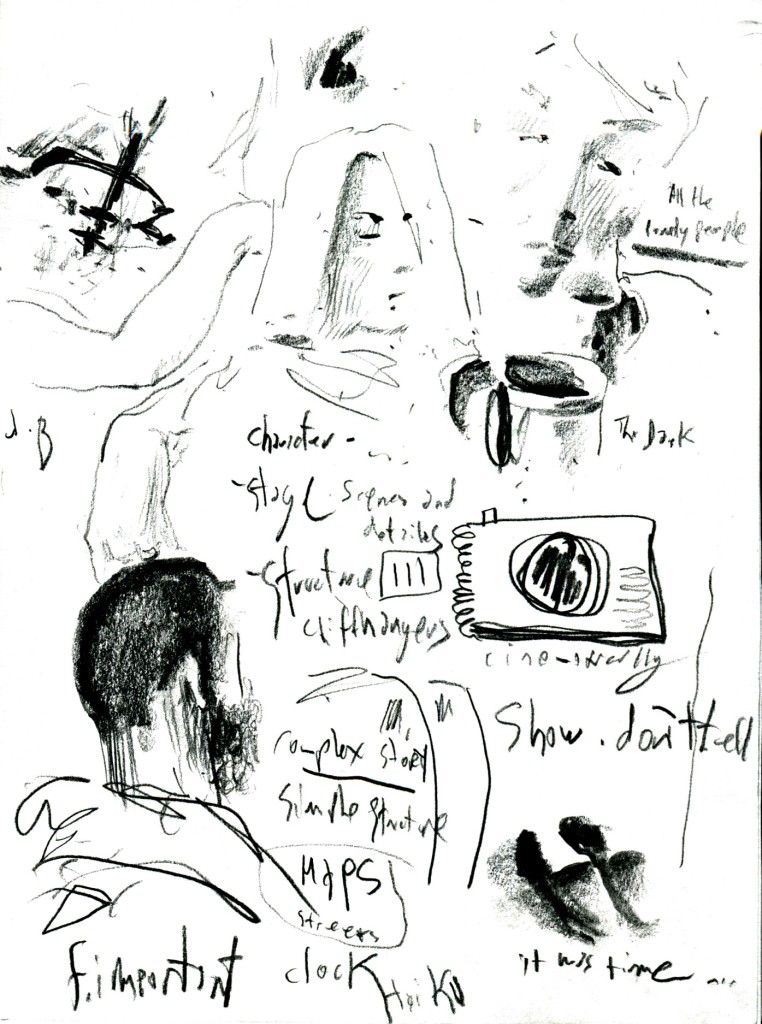 All the
lonely people
J.B
The Dark
character -
- story scenes and
details
- structure
cliffhangers
cine-
Show. don't tell
complex story
simple structure
Maps
streets
it was time ...
f. important
clock
Haiku